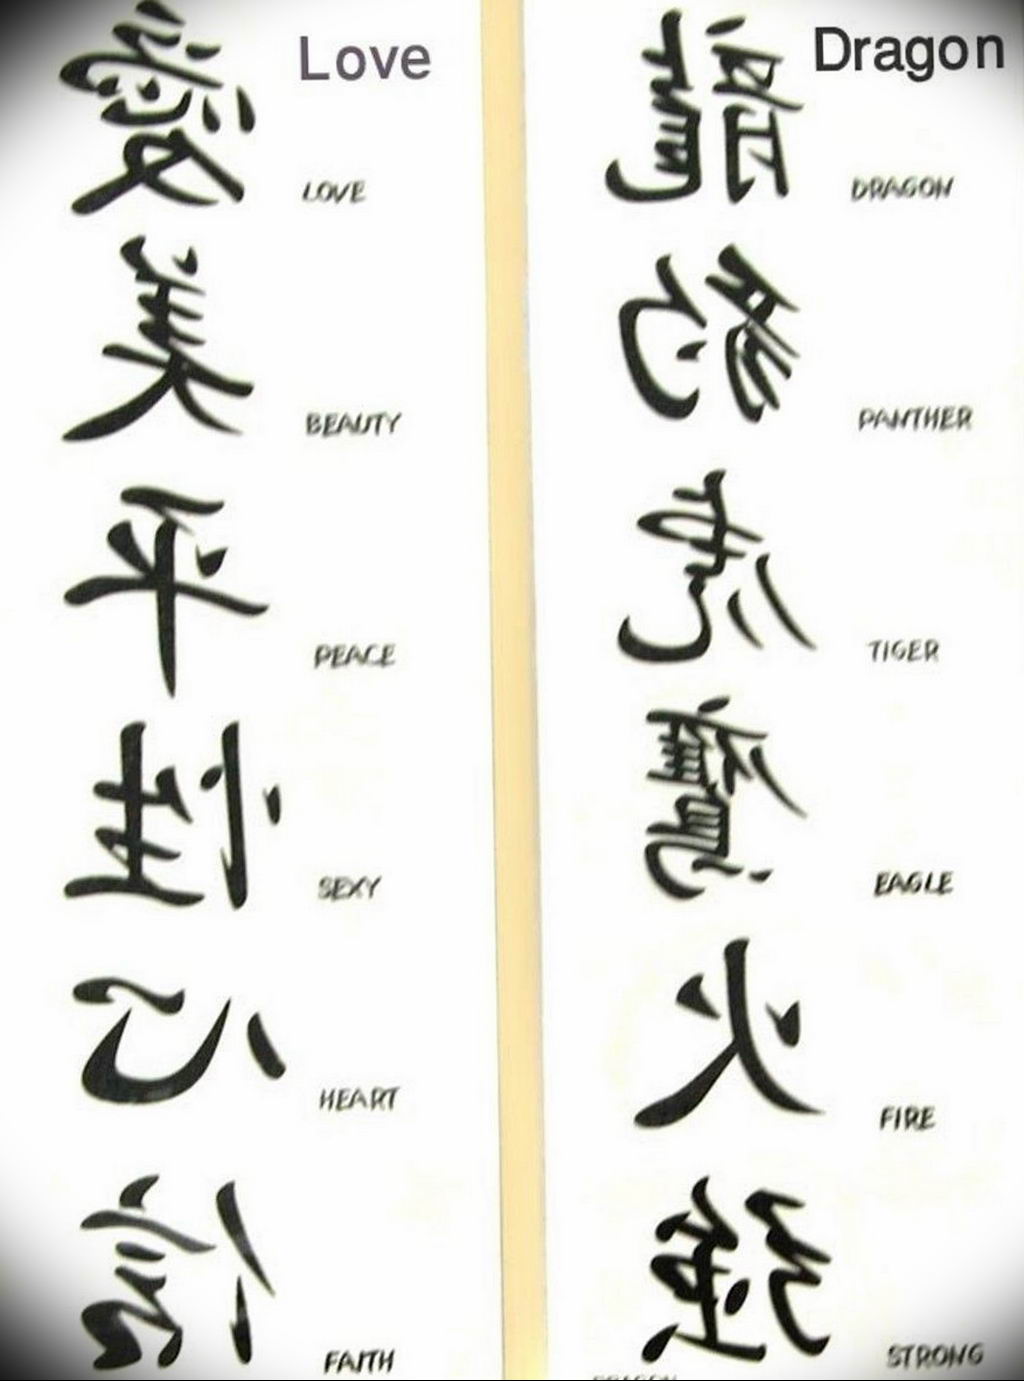 Love
愛
LOVE
美
BEAUTY
平
PEACE
性
SEXY
心
HEART
信
FAITH
Dragon
龍
DRAGON
豹
PANTHER
虎
TIGER
鷹
EAGLE
火
FIRE
強
STRONG